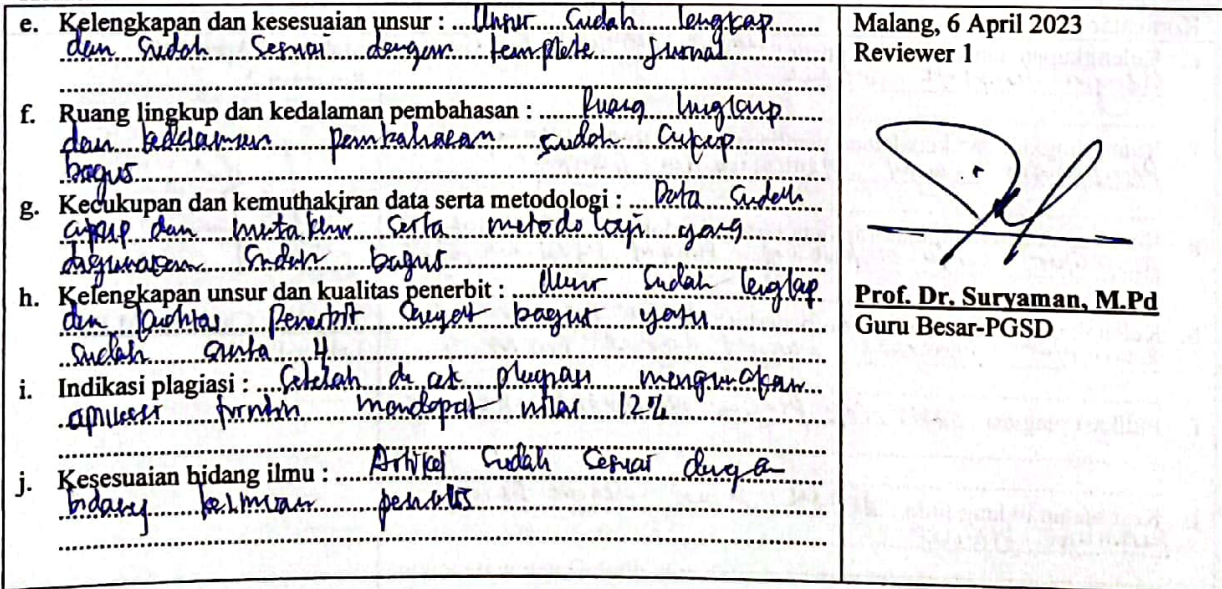 e. Kelengkapan dan kesesuaian unsur : Unsur Sudah lengkap
dan Sudah Sesuai dengan template Jurnal
f. Ruang lingkup dan kedalaman pembahasan : Ruang lingkup
dan kedalaman pembahasan sudah cukup
bagus
g. Kecukupan dan kemuthakiran data serta metodologi : Data Sudah
cukup dan mutakhir Serta metodologi yang
digunakan Sudah bagus
h. Kelengkapan unsur dan kualitas penerbit : Unsur Sudah lengkap
dan kualitas Penerbit Sangat bagus yaitu
Sudah sinta 4
i. Indikasi plagiasi : Setelah di cek plagiasi menggunakan
aplikasi turnitin mendapat nilai 12%
j. Kesesuaian bidang ilmu : Artikel Sudah Sesuai dengan
bidang keilmuan penulis
Malang, 6 April 2023
Reviewer 1
Prof. Dr. Suryaman, M.Pd
Guru Besar-PGSD